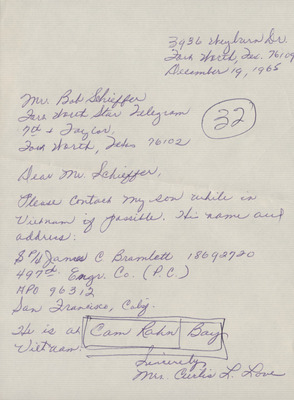 3936 Weyburn Dr.
Fort Worth, Tex. 76109
December 19, 1965
Mr. Bob Shieffer
Fort Worth Star Telegram
7th & Taylor,
Fort Worth, Texas 76102
32
Dear Mr. Schieffer,
Please contact my son while in
Vietnam if possible. His name and
address:
James C Bramlett 18692720
497th Engr. Co. (P.C.)
APO 96312
San Francisco, Calif.
He is at Cam Rahn Bay
Vietnam.
Sincerely
Mrs. Curtis L. Love